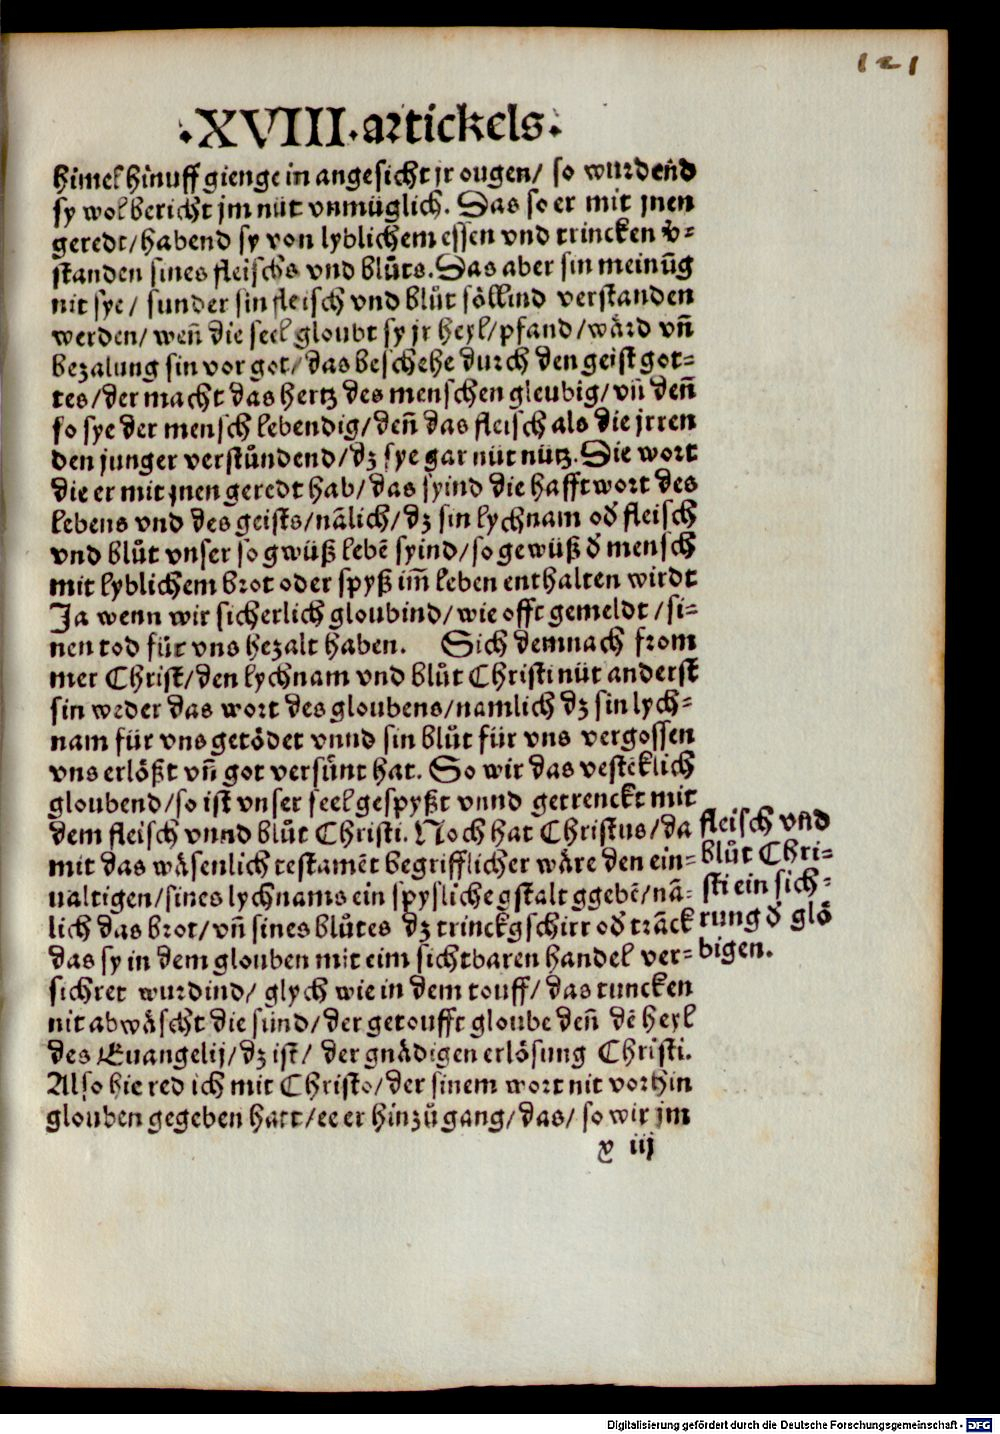 121
.XVIII. artickels.
himel hinuff gienge in angesicht jr ougen/ so wurdend
sy wol bericht jm nüt vnmüglich. Das so er mit jnen
geredt/ habend sy von lyblichem essen vnd trincken v̄-
standen sines fleischs vnd blůts. Das aber sin meinūg
nit sye/ sunder sin fleisch vnd blůt söllind verstanden
werden/ weñ die seel gloubt sy jr heyl/ pfand/ wärd vñ
bezalung sin vor got/ das beschehe durch den geist got-
tes/ der macht das hertz des menschen gleubig/ vñ deñ
so sye der mensch lebendig/ deñ das fleisch als die jrren
den junger verstůndend/ dz sye gar nüt nütz. Die wort
die er mit jnen geredt hab/ das syind die hafft wort des
lebens vnd des geists/ nālich/ dz sin lychnam od̄ fleisch
vnd blůt vnser so gwüß lebē syind/ so gewüß d̄ mensch
mit lyblichem brot oder spyß im̄ leben enthalten wirdt
Ja wenn wir sicherlich gloubind/ wie offt gemeldt/ si-
nen tod für vns bezalt haben. Sich demnach from
mer Christ/ den lychnam vnd blůt Christi nüt anderst
sin weder das wort des gloubens/ namlich dz sin lych-
nam für vns getödet vnnd sin blůt für vns vergossen
vns erlößt vñ got versünt hat. So wir das vestēklich
gloubend/ so ist vnser seel gespyßt vnnd getrenckt mit
dem fleisch vnnd blůt Christi. Noch hat Christus/ da
mit das wäsenlich testamēt begrifflicher wäre den ein-
ualtigen/ sines lychnams ein spysliche gstalt ggebē/ nā-
lich das brot/ vñ sines blůtes dz trinckgschirr od̄ trāck
das sy in dem glouben mit eim sichtbaren handel ver-
sichret wurdind/ glych wie in dem touff/ das tuncken
nit abwäscht die sünd/ der getoufft gloube deñ dē heyl
des Euangelij/ dz ist/ der gnädigen erlösung Christi.
Also hie red ich mit Christo/ der sinem wort nit vorhin
glouben gegeben hatt/ ee er hinzů gang/ das/ so wir jm
fleisch vnd
blůt Chri-
sti ein sich-
rung d̄ glö
bigen.
x iij
Digitalisierung gefördert durch die Deutsche Forschungsgemeinschaft - DFG